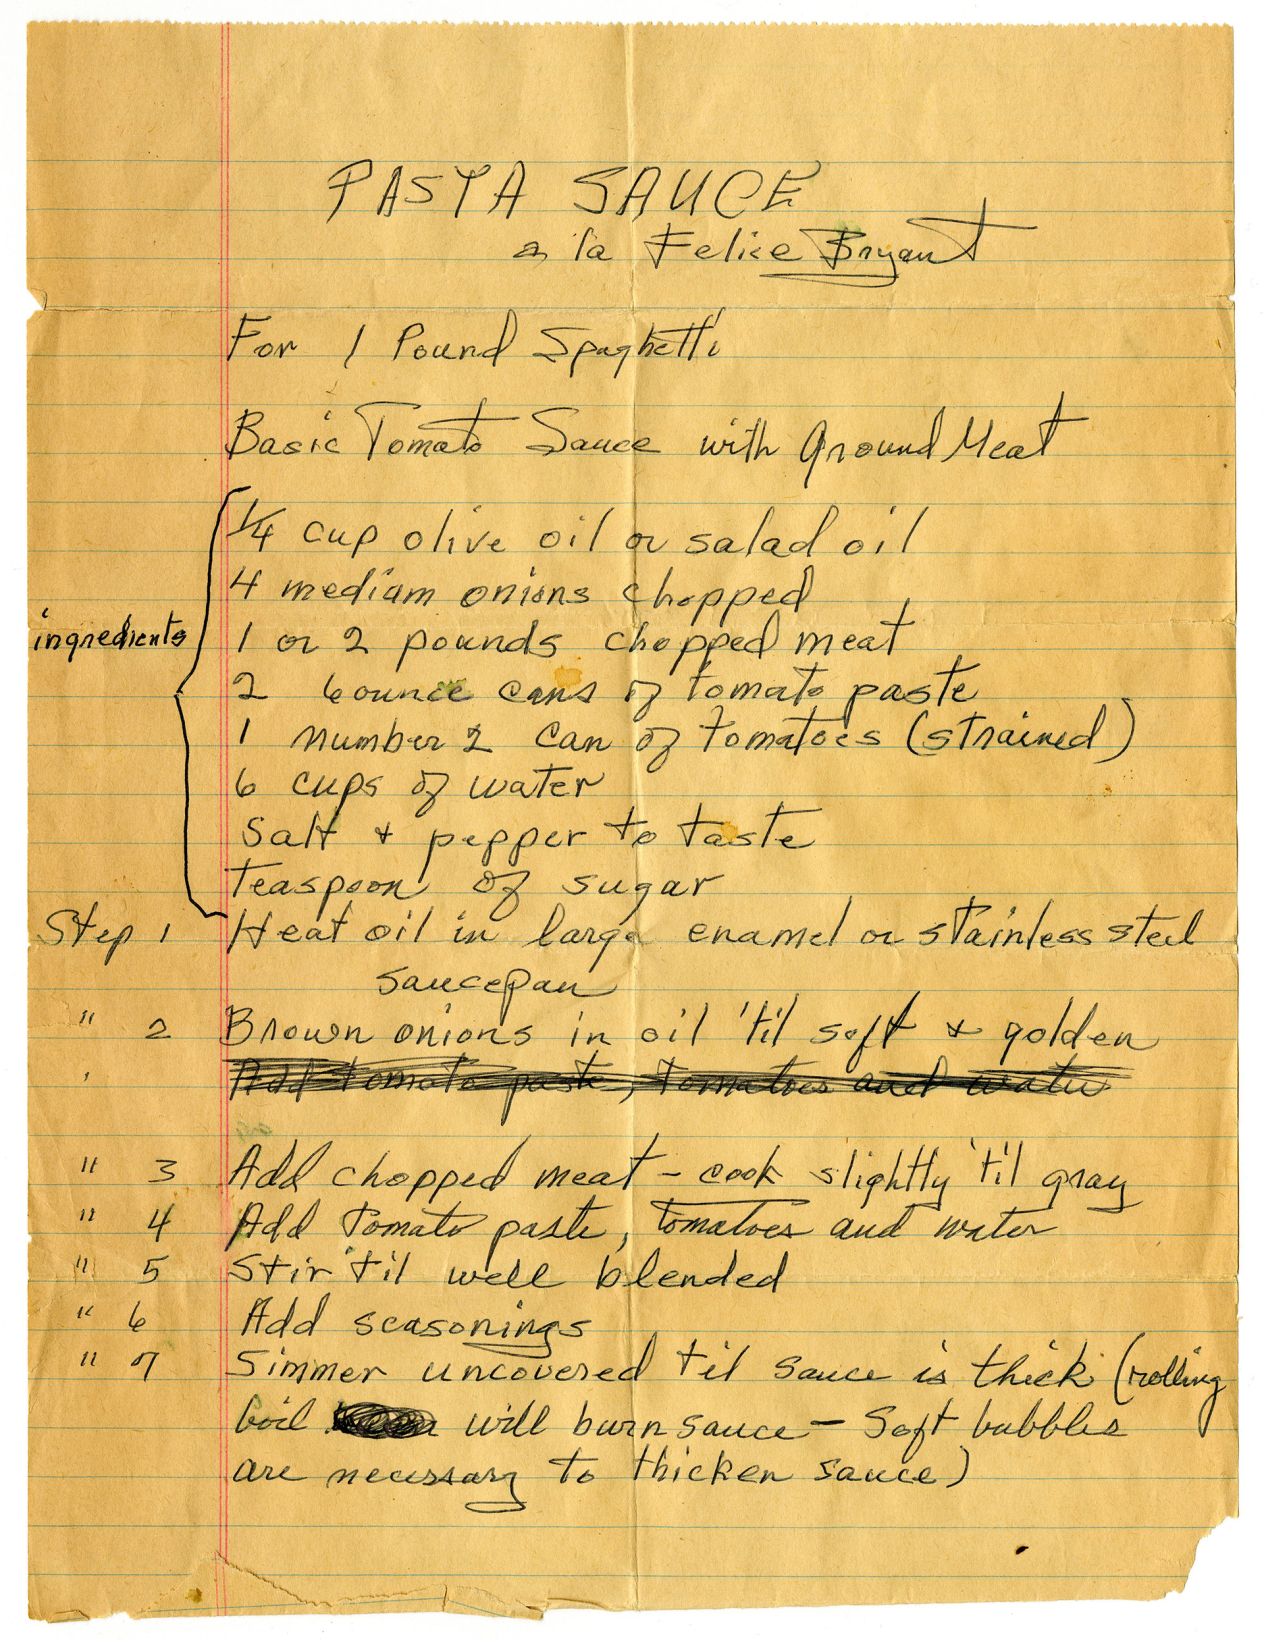 PASTA SAUCE
a la Felice Bryant
For 1 Pound Spaghetti
Basic Tomato Sauce with Ground Meat
1/4 cup olive oil or salad oil
4 mediam onions chopped
ingredients 1 or 2 pounds chopped meat
2 6 ounce cans of tomato paste
1 number 2 can of tomatoes (strained)
6 cups of water
Salt & pepper to taste
Teaspoon of sugar
Step 1 Heat oil in large enamel or stainless steel
saucepan
" 2 Brown onions in oil 'til soft & golden
Add tomato paste, tomatoes and water
" 3 Add chopped meat - cook slightly 'til gray
" 4 Add Tomato paste, tomatoes and water
" 5 Stir 'til well blended
" 6 Add seasonings
" 7 Simmer uncovered til sauce is thick (rolling
boil will burn sauce - Soft bubbles
are necessary to thicken sauce)